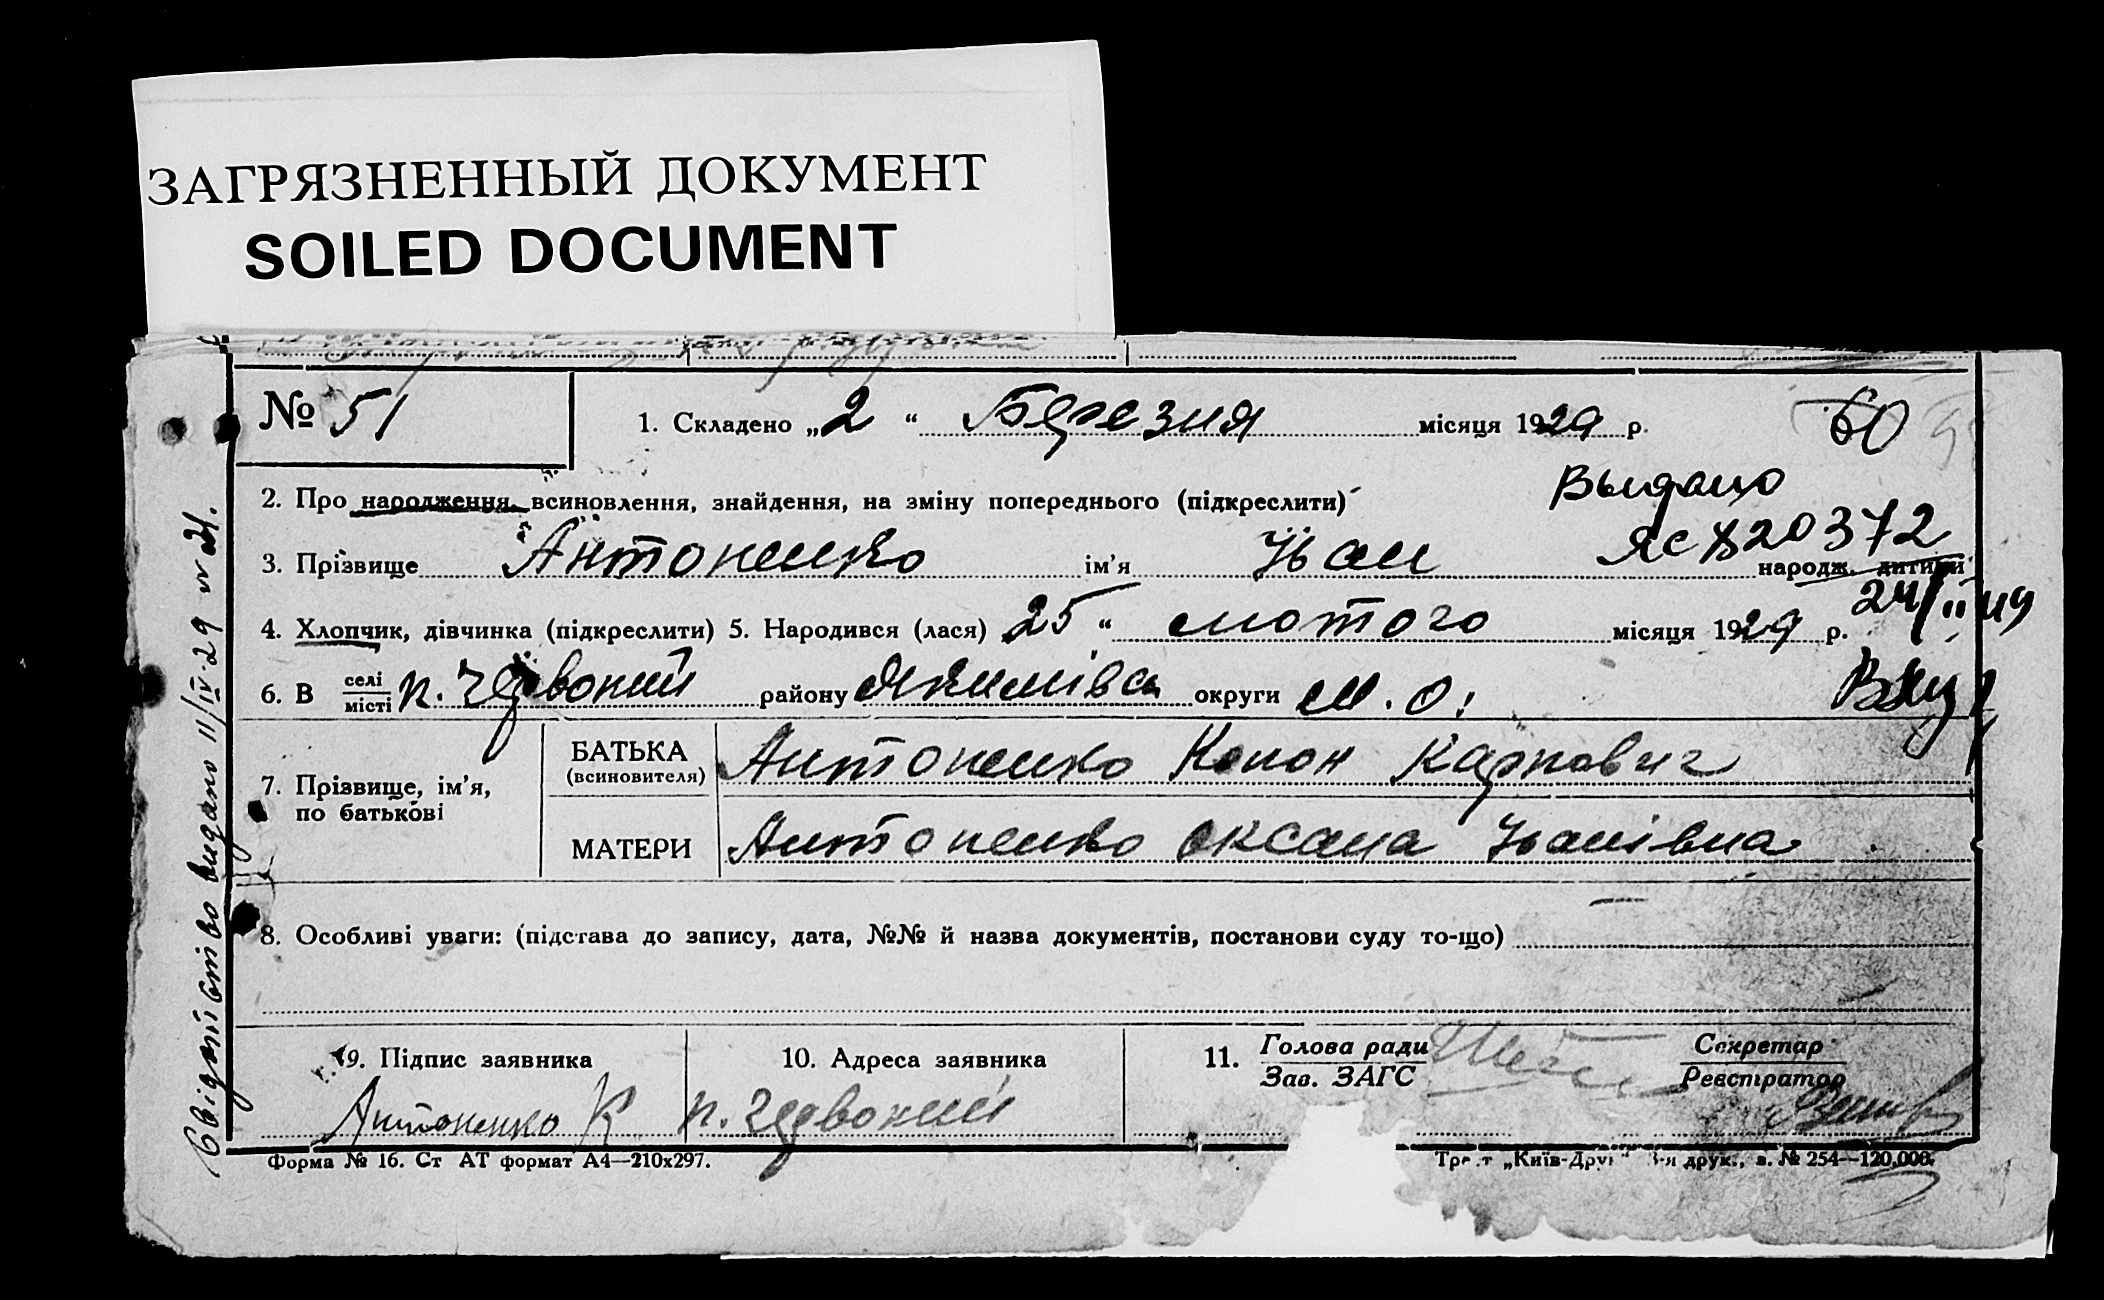 ЗАГРЯЗНЕННЫЙ ДОКУМЕНТ
SOILED DOCUMENT
№ 51
1. Складено „2“ Березня місяця 1929 р.
60
2. Про народження, всиновлення, знайдення, на зміну попереднього (підкреслити)
Выдано
ЯС № 20372
3. Прізвище Антоненко ім’я Іван народж. дитини
24/II 49
4. Хлопчик, дівчинка (підкреслити) 5. Народився (лася) 25“ лютого місяця 1929 р.
6. В селі місті п. Червоний району Якимівсь округи М. О.
7. Прізвище, ім’я, по батькові
БАТЬКА (всиновителя) Антоненко Конон Карпович
МАТЕРИ Антоненко Оксана Іванівна
8. Особливі уваги: (підстава до запису, дата, №№ й назва документів, постанови суду то-що)
9. Підпис заявника
Антоненко К
10. Адреса заявника
п. Червоний
11. Голова ради Зав. ЗАГС
Секретар Реєстратор
Форма № 16. Ст АТ формат А4—210х297.
Трест „Київ-Друк“ 3-я друк., з. № 254—120,000.
Свідоцтво видано 11/IV-29